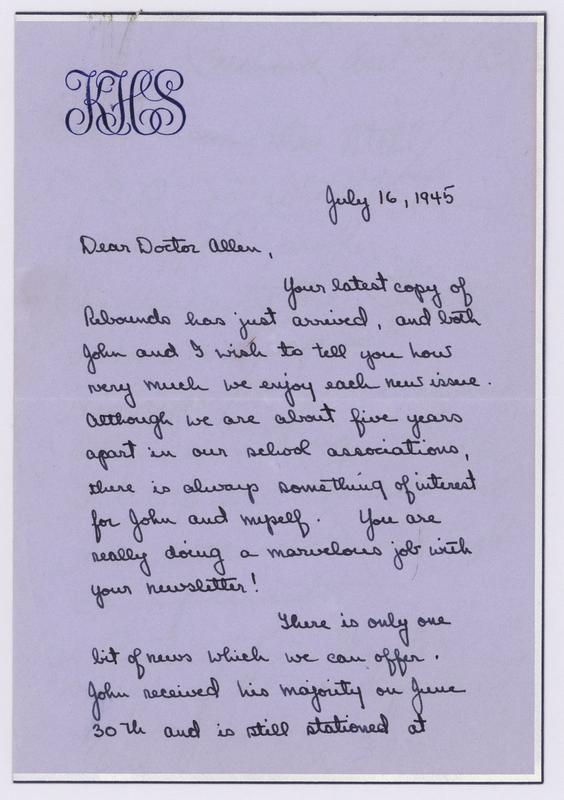 KHS
July 16, 1945
Dear Doctor Allen,
Your latest copy of
Rebounds has just arrived, and both
John and I wish to tell you how
very much we enjoy each new issue.
Although we are about five years
apart in our school associations,
there is always something of interest
for John and myself. You are
really doing a marvelous job with
your newsletter!
There is only one
bit of news which we can offer.
John received his majority on June
30th and is still stationed at